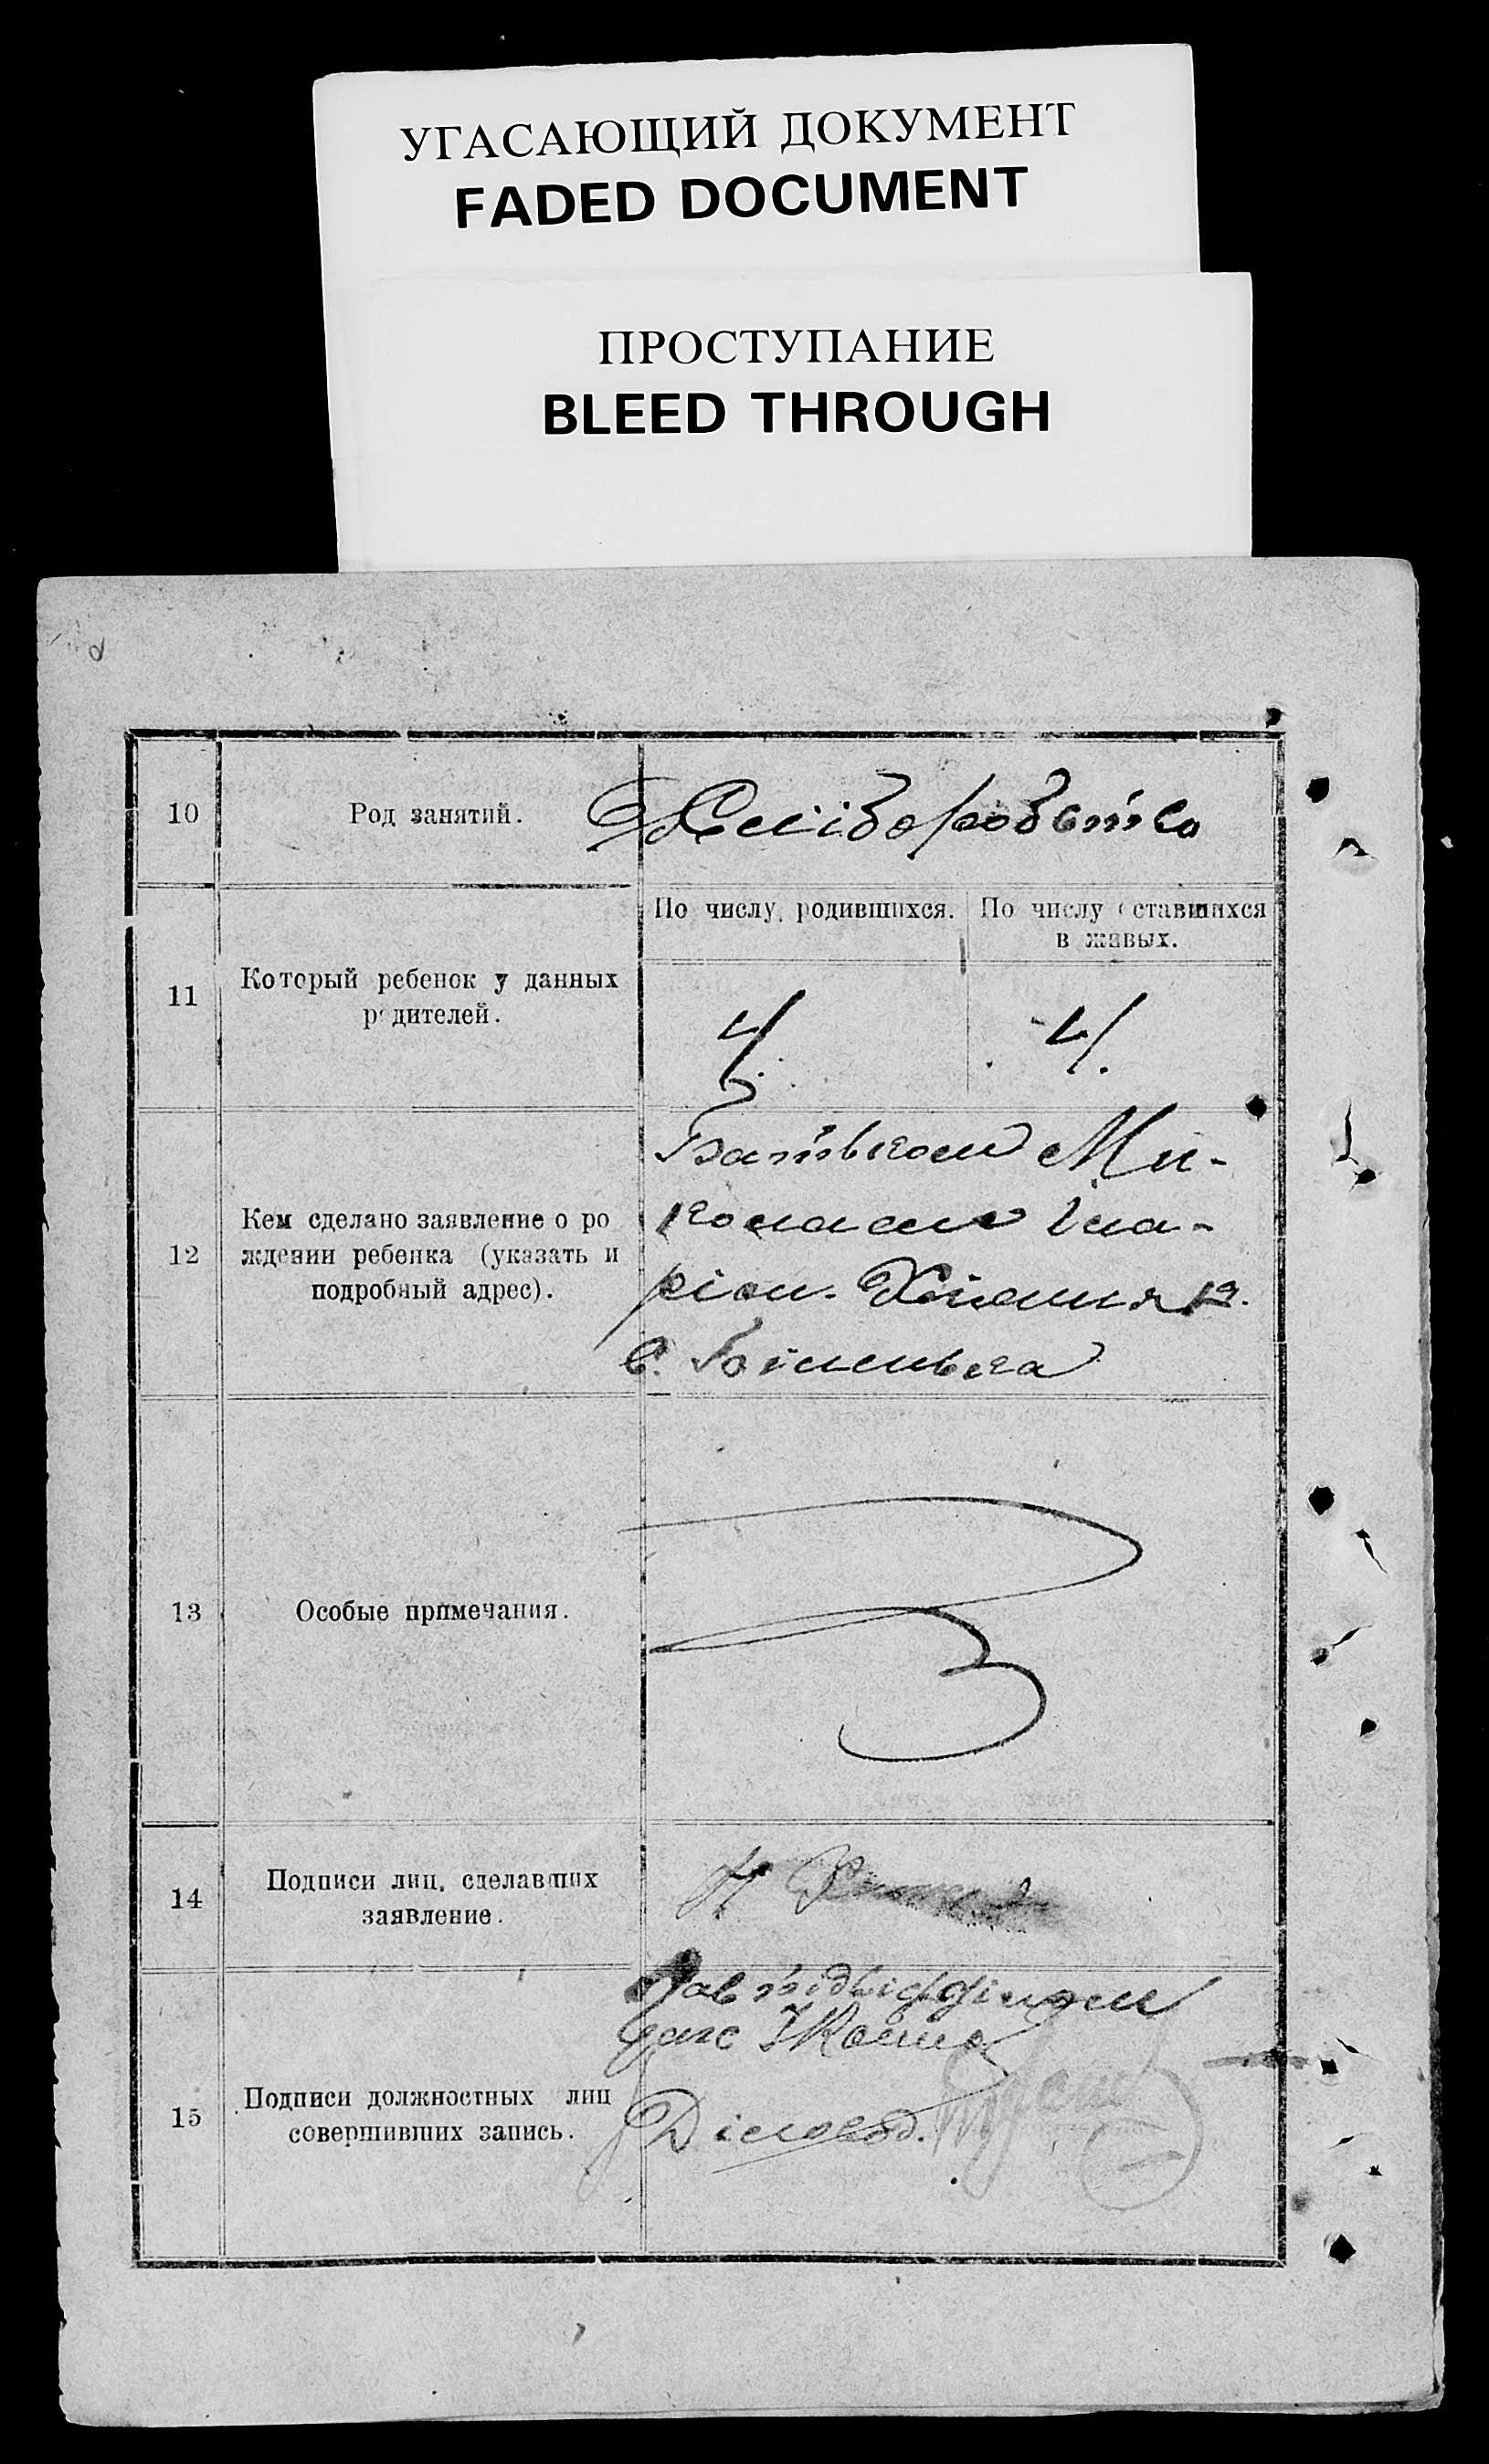 УГАСАЮЩИЙ ДОКУМЕНТ
FADED DOCUMENT
ПРОСТУПАНИЕ
BLEED THROUGH
10
Род занятий.
Хліборобство
11
Который ребенок у данных
родителей.
По числу родившихся.
По числу оставшихся
в живых.
4.
4.
12
Кем сделано заявление о ро
ждении ребенка (указать и
подробный адрес).
Батьком Ми-
колаем Іла-
ріон.
с.
13
Особые примечания.
14
Подписи лиц, сделавших
заявление.
Н
15
Подписи должностных лиц
совершивших запись.
Діловод.